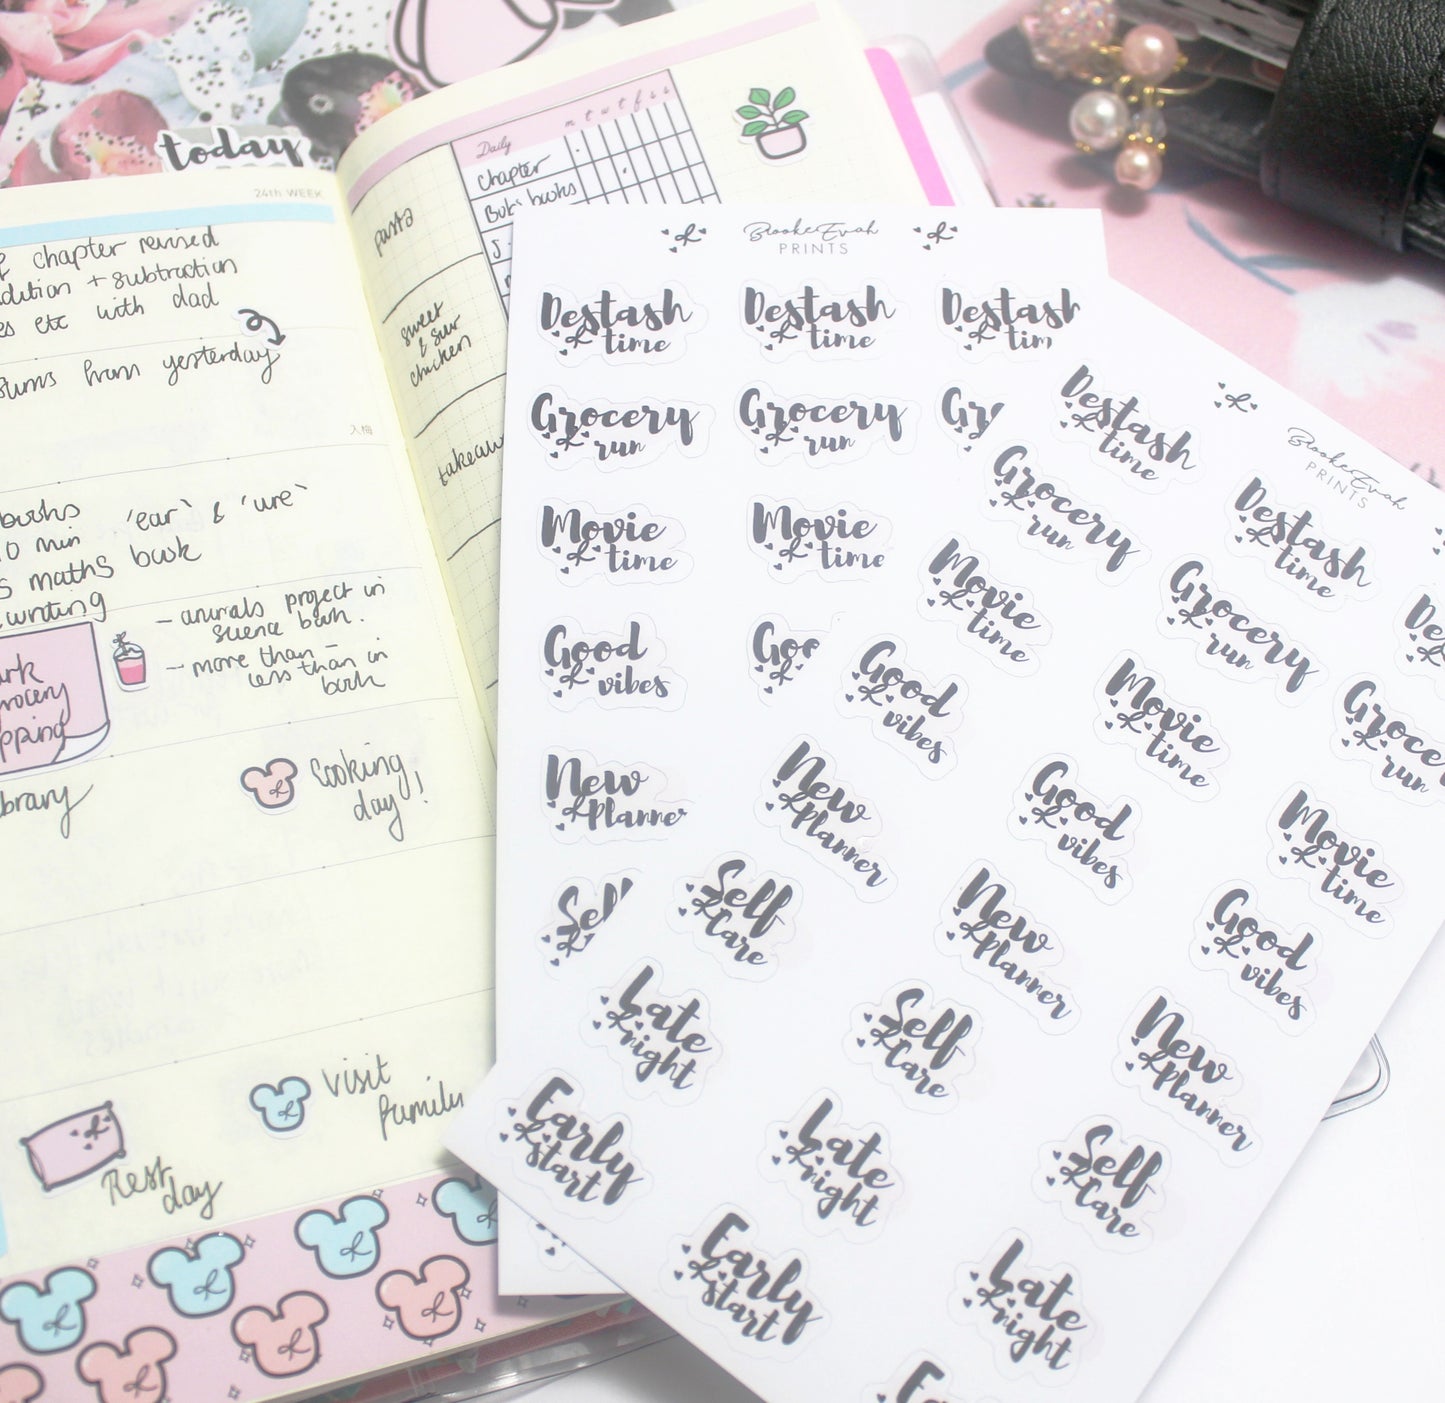 today
24th WEEK
chapter revised
+ subtraction
etc with dad
from yesterday
入梅
books 'ear' & 'ure'
10 min
maths book
writing
- animals project in
science book.
- more than -
less than in
book
Cooking
day!
visit
family
Rest
day
Daily
m t w t f s s
Chapter
Bob's books
pasta
sweet
& sour
chicken
BrookeEvah
PRINTS
Destash
time
Destash
time
Destash
Grocery
run
Grocery
run
Movie
time
Movie
time
Good
vibes
New
Planner
BrookeEvah
PRINTS
Destash
time
Destash
time
Grocery
run
Grocery
run
run
Movie
time
Movie
time
Movie
time
Good
vibes
Good
vibes
Good
vibes
New
Planner
New
Planner
New
Planner
Self
Care
Self
Care
Self
Care
Late
night
Late
night
Late
night
Early
start
Early
start